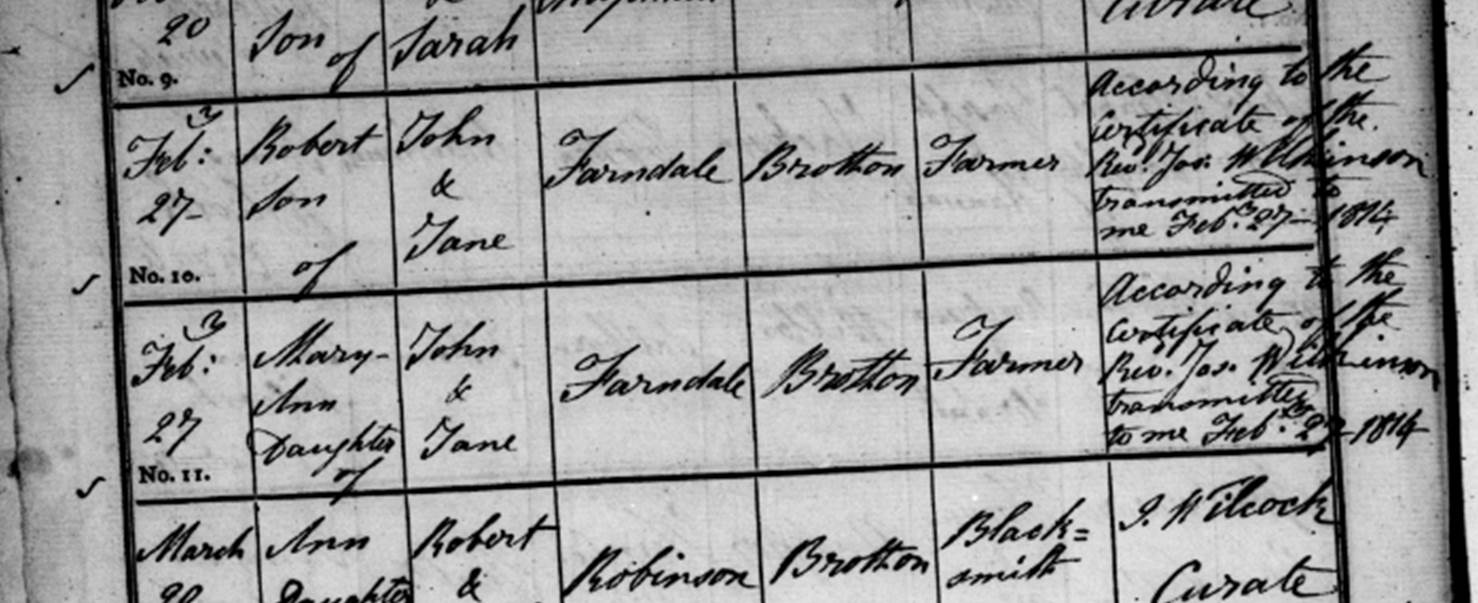 20 Son of Sarah Curate
No. 9.
Feb:ʸ
27-
Robert
Son
of
John
&
Jane
Farndale
Brotton
Farmer
According to the
Certificate of the
Revᵈ Jos. Wilkinson
transmitted to
me Febʸ 27- 1814
No. 10.
Feb:ʸ
27
Mary-
Ann
Daughter
of
John
&
Jane
Farndale
Brotton
Farmer
According to the
Certificate of the
Rev. Jos. Wilkinson
transmitted
to me Feb:ʸ 27 1814
No. 11.
March
Ann
Daughter
Robert
&
Robinson
Brotton
Black=
smith
J. Wilcock
Curate